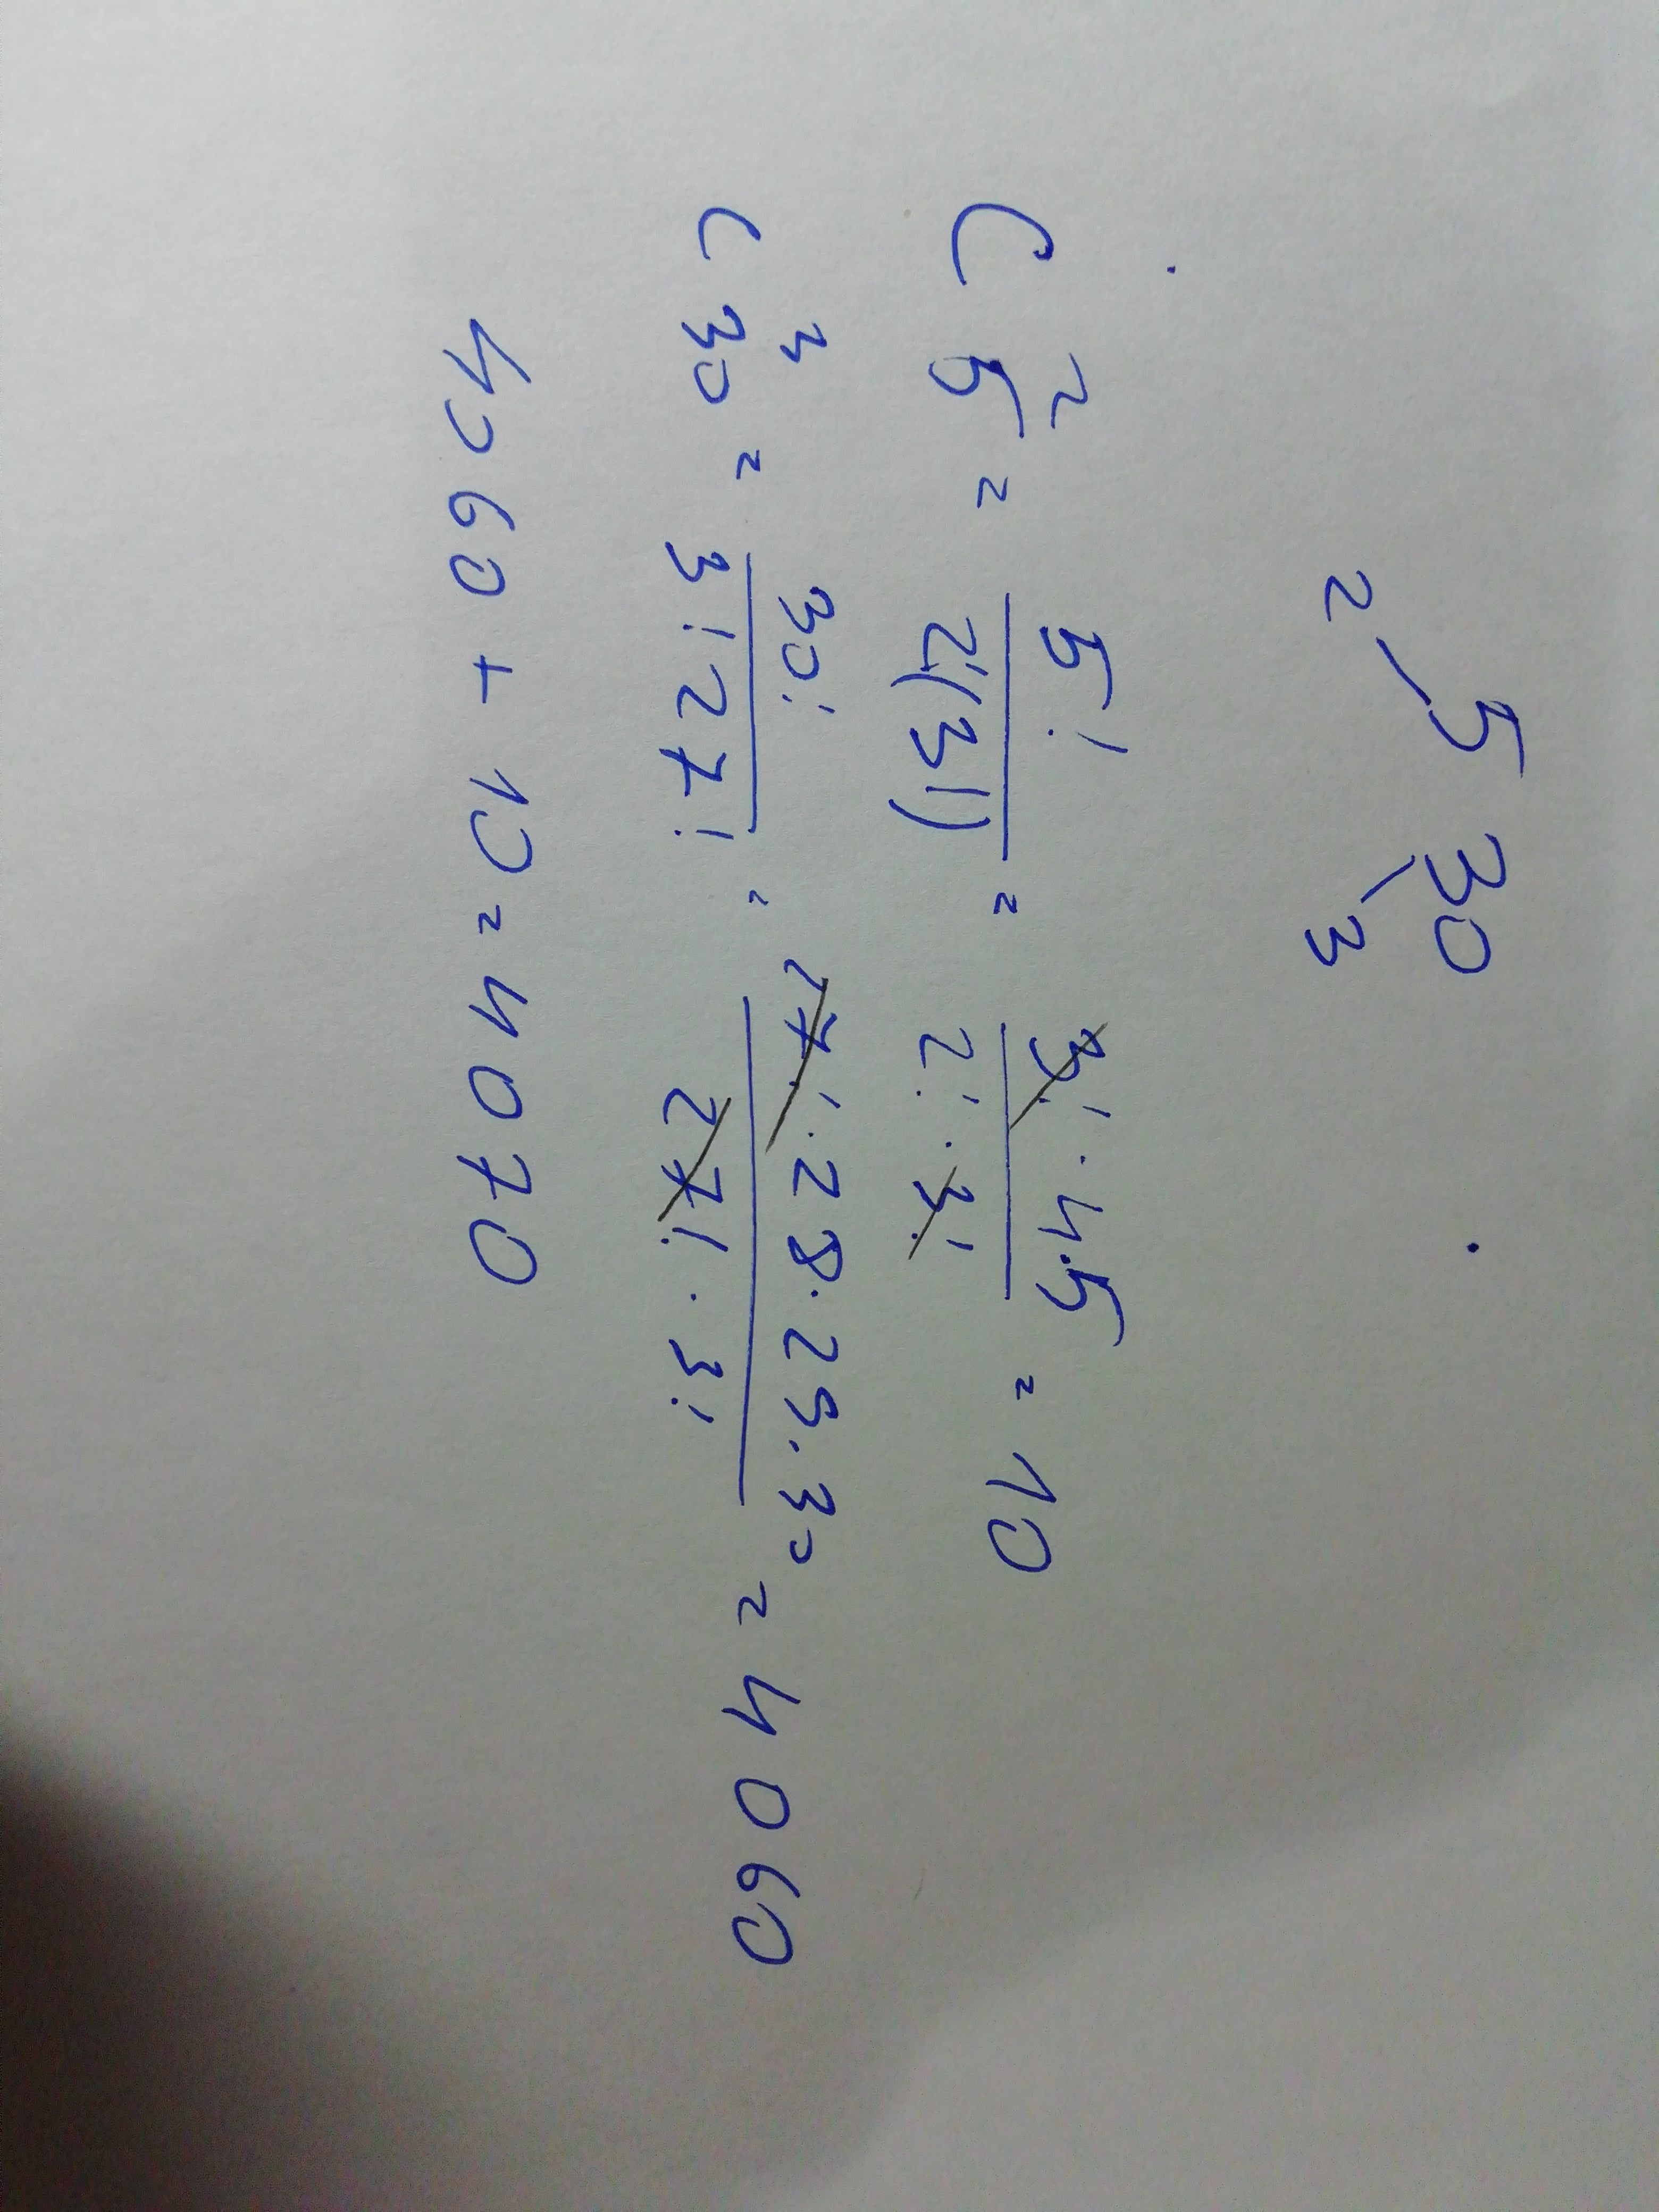 5 30
2 3
C 2 5 = 5! / 2!(3!) = 3! · 4 · 5 / 2! · 3! = 10
C 3 30 = 30! / 3! 27! = 27! · 28 · 29 · 30 / 27! · 3! = 4060
4060 + 10 = 4070